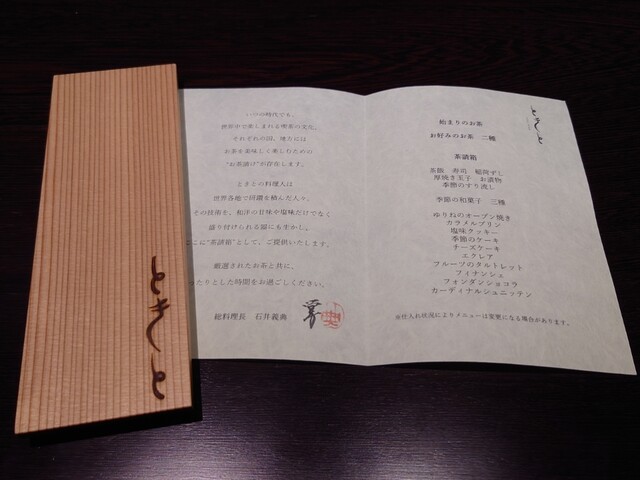 ときと
いつの時代でも、
世界中で楽しまれる喫茶の文化。
それぞれの国、地方には
お茶を美味しく楽しむための
"お茶請け"が存在します。
ときとの料理人は
世界各地で研鑽を積んだ人々。
その技術を、和洋の甘味や塩味だけでなく
盛り付けられる器にも生かし。
ここに"茶請箱"として、ご提供いたします。
厳選されたお茶と共に、
ったりとした時間をお過ごしください。
総料理長 石井義典
ときと
始まりのお茶
お好みのお茶 二種
茶請箱
茶飯 寿司 稲荷ずし
厚焼き玉子 お漬物
季節のすり流し
季節の和菓子 三種
ゆりねのオーブン焼き
カラメルプリン
塩味クッキー
季節のケーキ
チーズケーキ
エクレア
フルーツのタルトレット
フィナンシェ
フォンダンショコラ
カーディナルシュニッテン
※仕入れ状況によりメニューは変更になる場合があります。